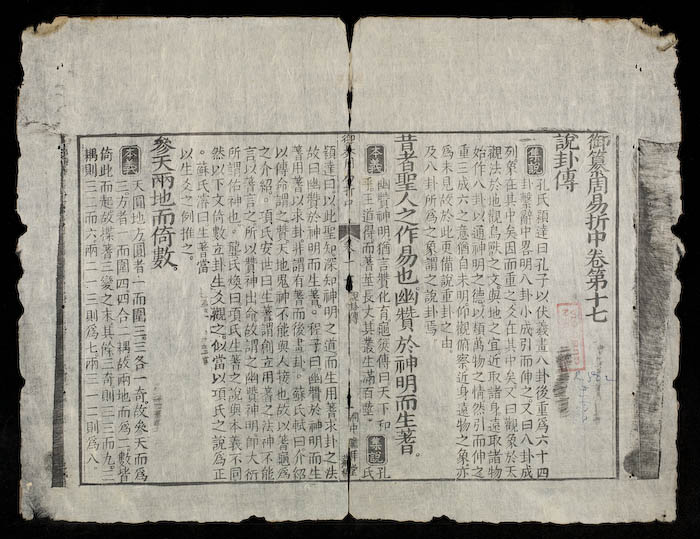 御纂周易折中卷第十七
說卦傳
集說 孔氏穎達曰孔子以伏羲畫八卦後重為六十四
卦繫辭中畧明八卦小成引而伸之又曰八卦成
列象在其中矣因而重之爻在其中矣又曰觀象於天
觀法於地觀鳥獸之文與地之宜近取諸身遠取諸物
始作八卦以通神明之德以類萬物之情然引而伸之
重三成六之意猶自未明仰觀俯察近身遠物之象亦
為未見故於此更備說重卦之由
及八卦所為之象謂之說卦焉
昔者聖人之作易也幽贊於神明而生蓍。
本義 幽贊神明猶言贊化育龜筴傳曰天下和
平王道得而蓍莖長丈其叢生滿百莖 集說 孔氏
穎達曰以此聖知深知神明之道而生用蓍求卦之法
故曰幽贊於神明而生蓍。程子曰幽贊於神明而生
蓍用蓍以求卦非謂有蓍而後畫卦。蘇氏軾曰介紹
以傳命謂之贊天地鬼神不能與人接也故以蓍龜為
之介紹。項氏安世曰生蓍謂創立用蓍之法神不能
言以蓍言之所以贊神出命故謂之幽贊神明即大衍
所謂佑神也。龔氏煥曰項氏生蓍之說與本義不同
然以下文倚數立卦生爻觀之似當以項氏之說為正
。蘇氏濬曰生蓍當
以生爻之例推之。
參天兩地而倚數。
本義 天圓地方圓者一而圍三三各一奇故參天而為
三方者一而圍四四合二耦故兩地而為二數皆
倚此而起故揲蓍三變之末其餘三奇則三三而九三
耦則三二而六兩二一三則為七兩三一二則為八。